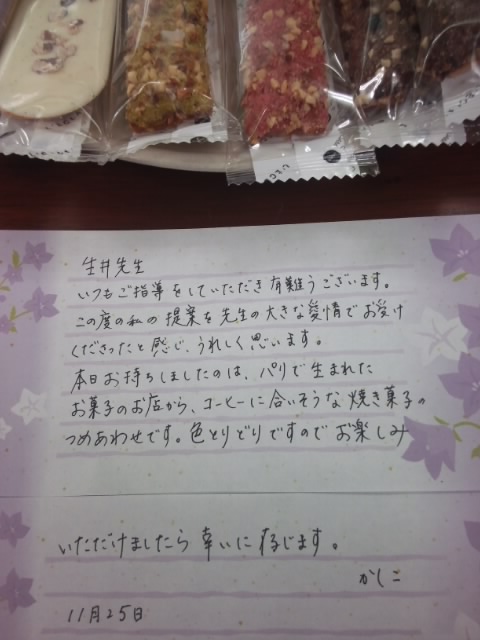 生井先生
いつもご指導をしていただき有難うございます。
この度の私の提案を先生の大きな愛情でお受け
くださったと感じ、うれしく思います。
本日お持ちしましたのは、パリで生まれた
お菓子のお店から、コーヒーに合いそうな焼き菓子の
つめあわせです。色とりどりですのでお楽しみ
いただけましたら幸いに存じます。
かしこ
11月25日